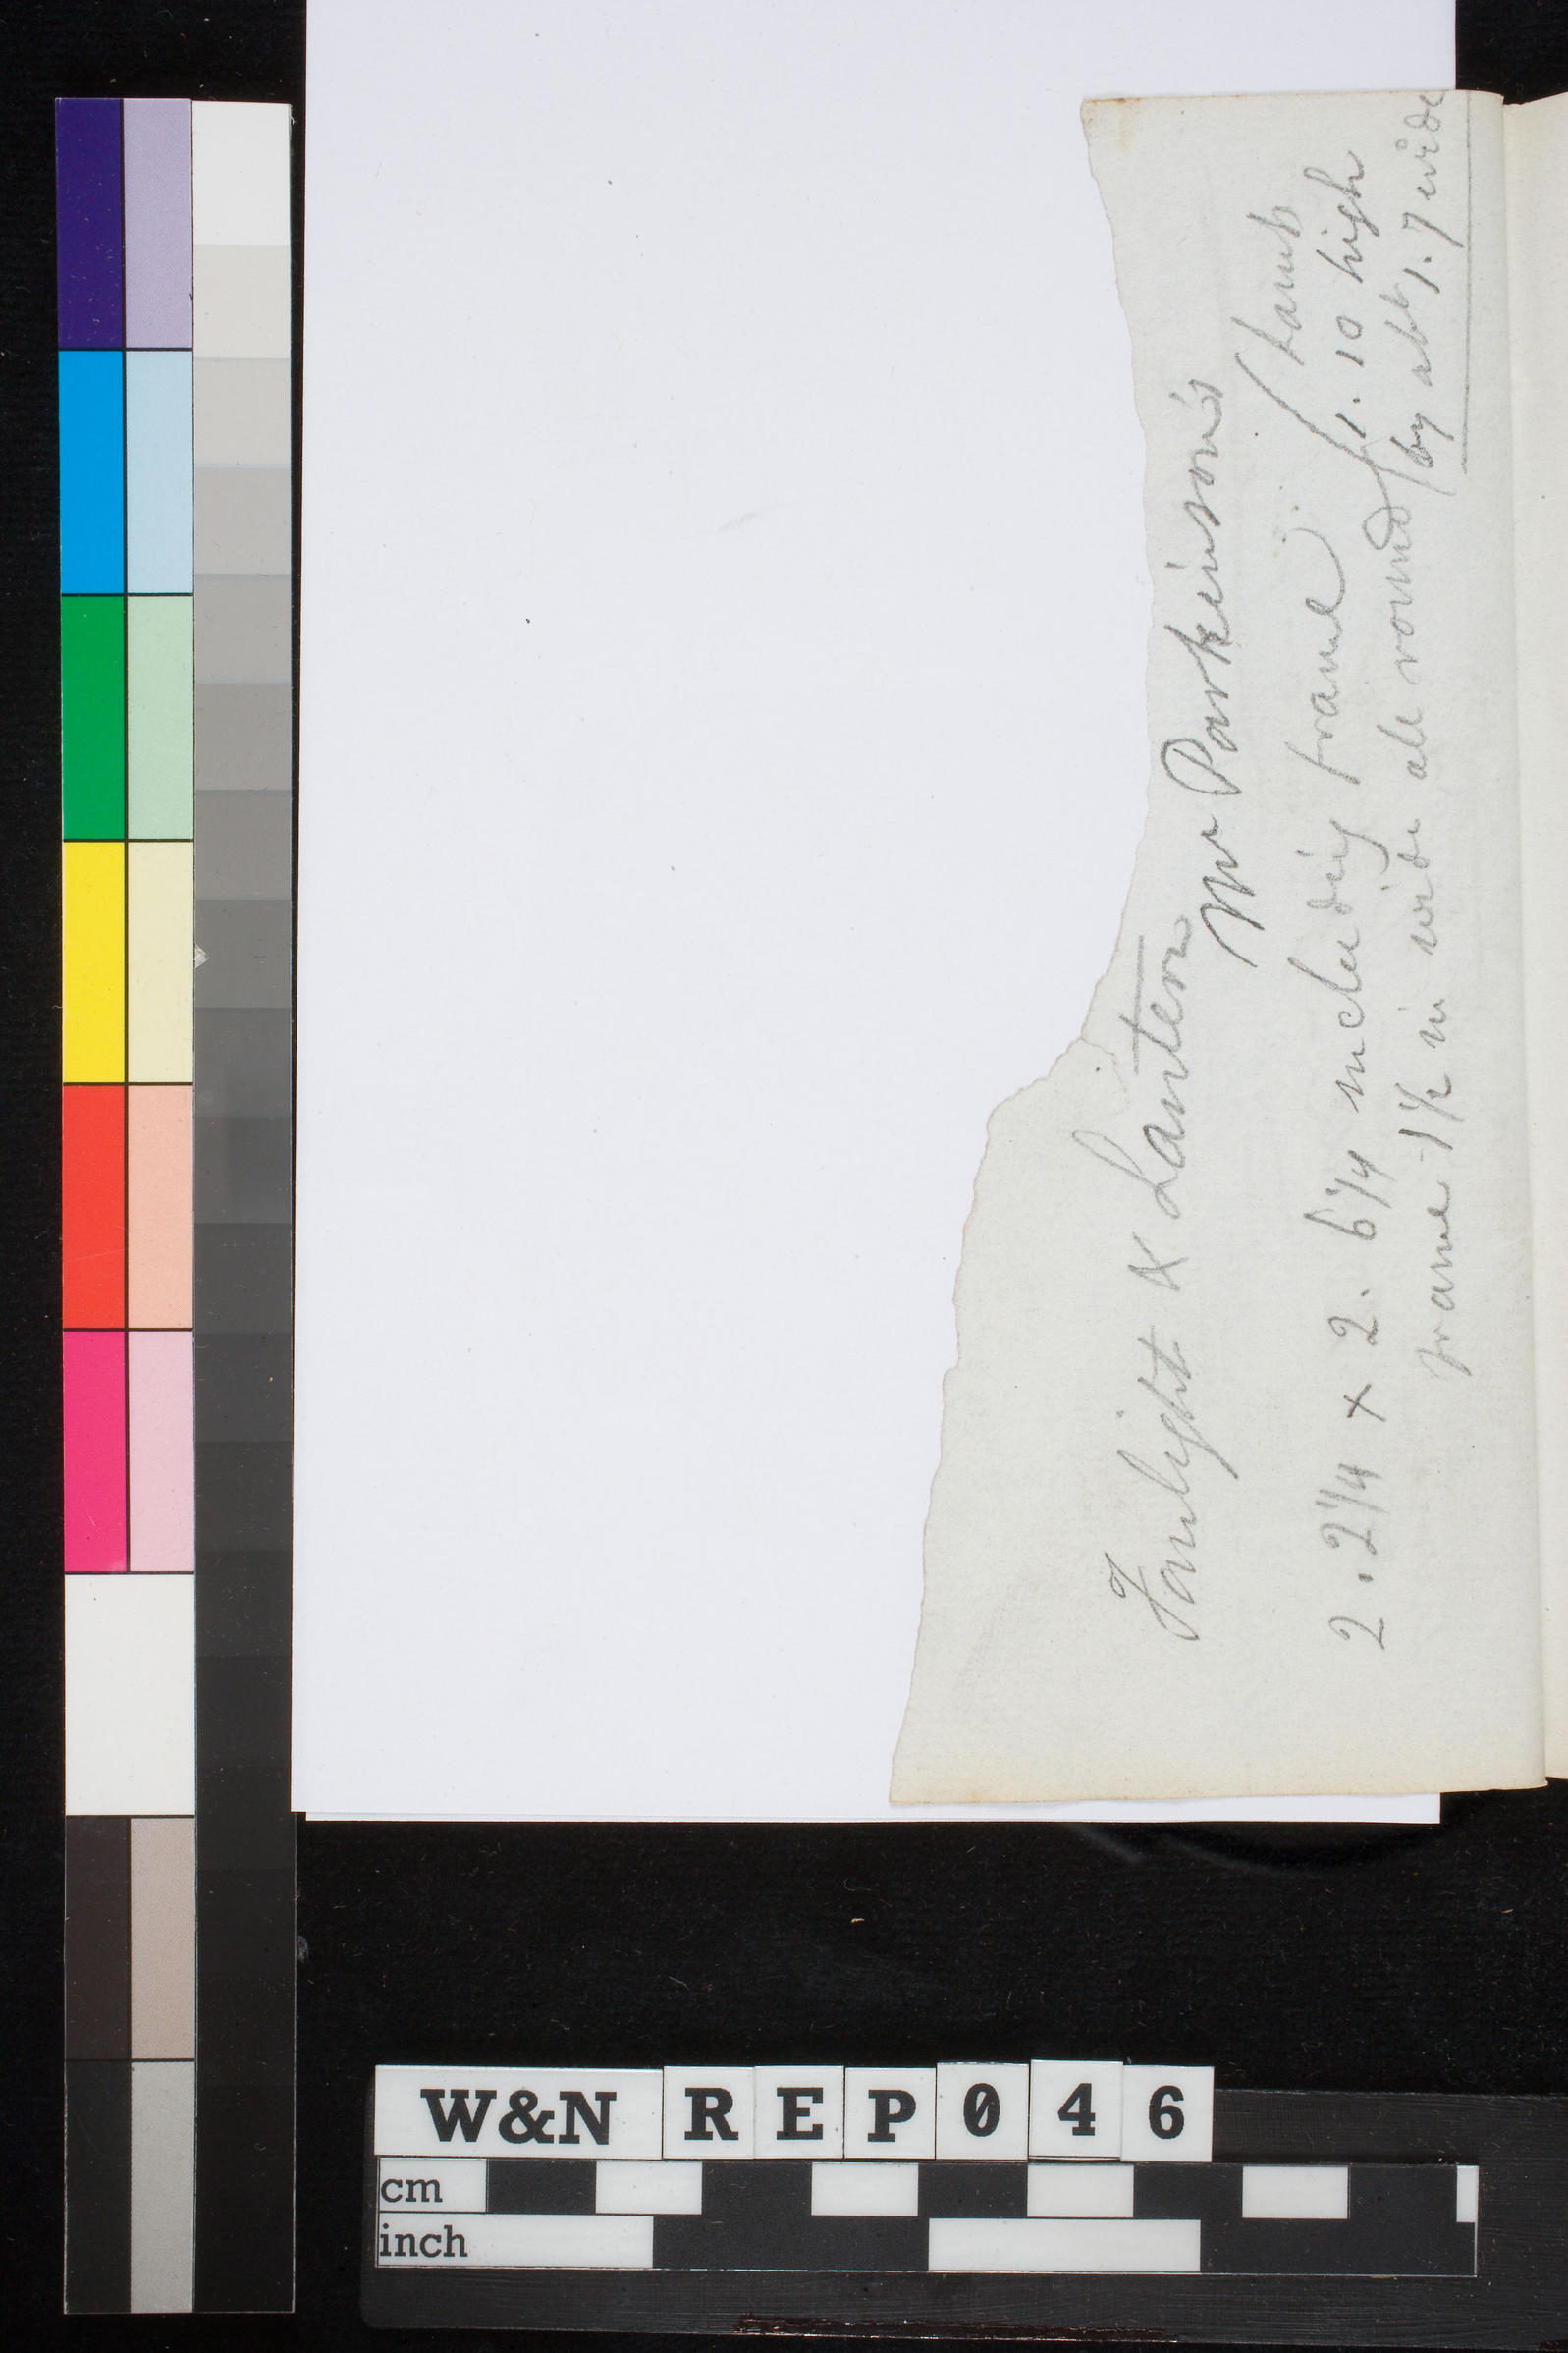 Fanlight & Lantern
Mr Parkinson's
2.2 1/4 × 2. 6 1/4 including frame
frame 1 1/2 in wide all round
1. 10 high
by abt 1. 7 wide
W&N REP046
cm
inch